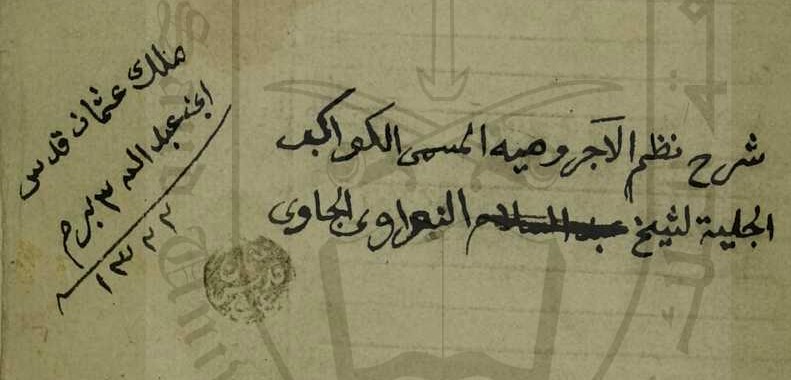 شرح نظم الآجروميه المسمى الكواكب
الجلية لشيخ عبد السلام النبراوى الجاوى
ملك عثمان قدس
ابن عبد الله
١٣٢٢